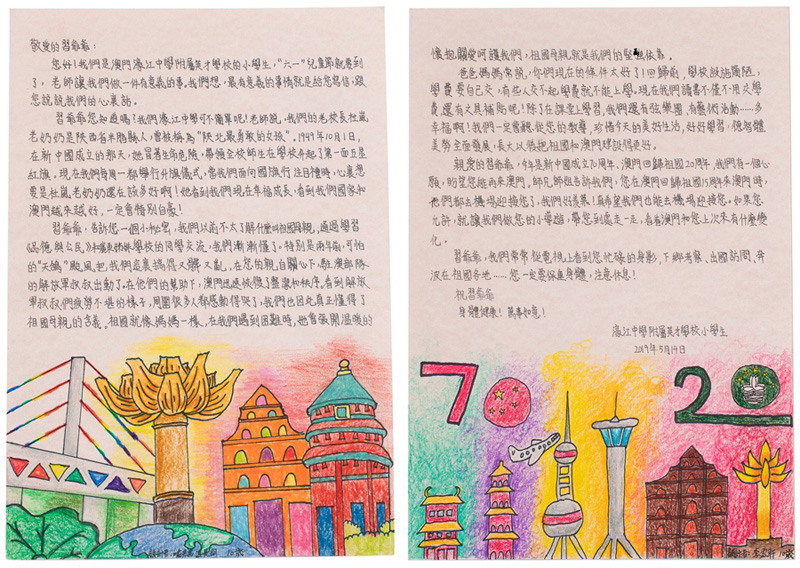 敬愛的習爺爺：
您好！我們是澳門濠江中學附屬英才學校的小學生，“六一”兒童節就要到
了，老師讓我們做一件有意義的事。我們想，最有意義的事情就是給您寫信，跟
您說說我們的心裏話。
習爺爺您知道嗎？我們濠江中學可不簡單呢！老師說，我們的老校長杜嵐
老奶奶是陝西省米脂縣人，曾被稱為“陝北最勇敢的女孩”。1949年10月1日，
在新中國成立的那天，她冒著生命危險，帶領全校師生在學校升起了第一面五星
紅旗，現在我們每周一都舉行升旗儀式，當我們面向國旗行注目禮時，心裏想
要是杜嵐老奶奶還在該多好啊！她看到我們現在幸福成長，看到我們國家和
澳門越來越好，一定會特別自豪！
習爺爺，告訴您一個小秘密，我們以前不太了解什麼叫祖國母親，通過學習
《品德與公民》和 學校的同學交流，我們漸漸懂了。特別是兩年前，可怕
的“天鴿”颱風把我們這裏搞得又髒又亂，在您的親自關心下，駐澳部隊
的解放軍叔叔出動了。在他們的幫助下，澳門迅速恢復了整潔和秩序。看到解放
軍叔叔們疲勞不堪的樣子，周圍很多人都感動得哭了，我們也因此真正懂得了
祖國母親的含義，祖國就像媽媽一樣，在我們遇到困難時，她會張開溫暖的
懷抱，關愛呵護我們，祖國母親就是我們的堅強依靠。
爸爸媽媽常說，你們現在的條件太好了！回歸前，學校設施簡陋，
學費要自己交，有些人交不起學費就不能上學，現在我們讀書不僅不用交學
費，還有文具補貼呢！除了在課堂上學習，我們還有弦樂團、有藝術活動……多
幸福啊！我們一定會聽從您的教導，珍惜今天的美好生活，好好學習，德智體
美勞全面發展，長大以後把祖國和澳門建設得更好。
親愛的習爺爺，今年是新中國成立70周年、澳門回歸祖國20周年，我們有一個心
願，盼望您能再來澳門。師兄師姐告訴我們，您在澳門回歸祖國15周年來澳門時，
他們都去機場迎接您了，我們好羨慕！真希望我們也能去機場迎接您。如果您
允許，就讓我們做您的小導遊，帶您到處走一走，看看澳門和您上次來有什麼變
化。
習爺爺，我們常常從電視上看到您忙碌的身影，下鄉考察、出國訪問、奔
波在祖國各地……您一定要保重身體，注意休息！
祝習爺爺
身體健康！萬事如意！
濠江中學附屬英才學校小學生
2019年5月19日
70 20
10歲
10歲